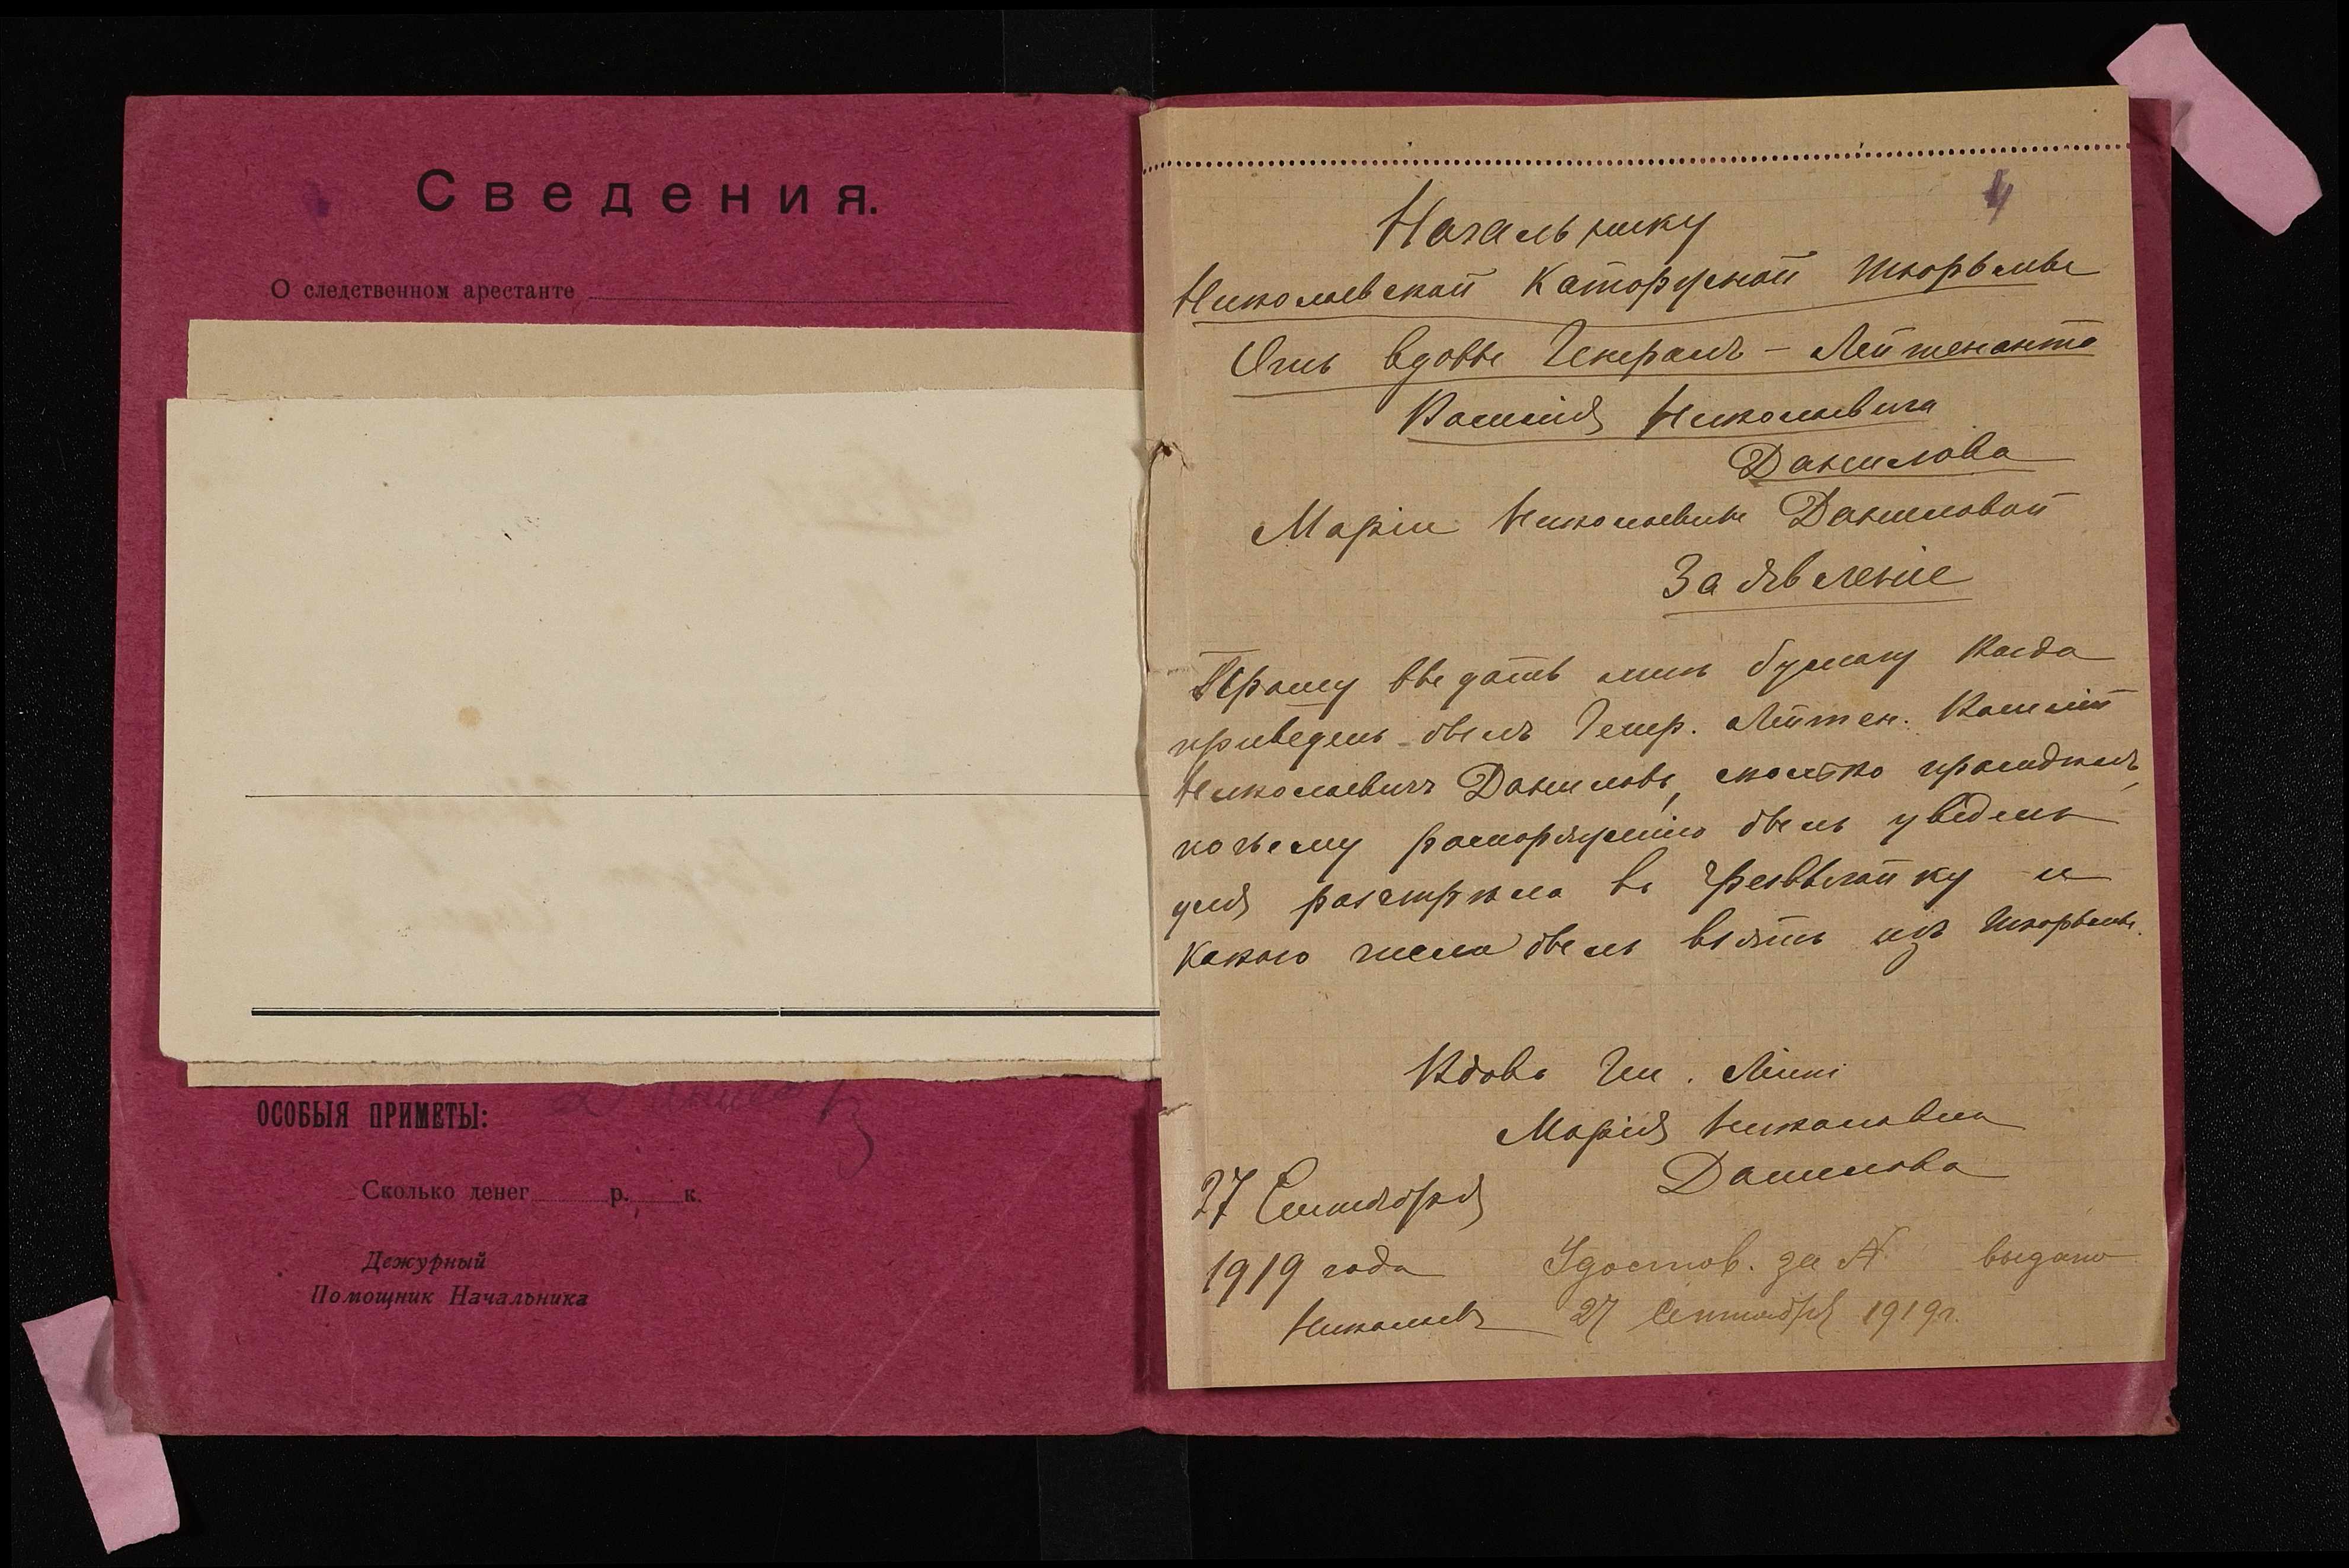 Сведения.
О следственном арестанте
ОСОБЫЯ ПРИМЕТЫ:
Сколько денег р. к.
Дежурный
Помощник Начальника
4
Начальнику
Николаевской Каторжной тюрьмы
Отъ вдовы Генералъ-Лейтенанта
Василія Николаевича
Данилова
Маріи Николаевны Даниловой
Заявленіе
Прошу выдать мнѣ бумагу когда
приведенъ былъ Генер. Лейтен. Василій
Николаевичъ Даниловъ, сколько просидѣлъ,
по чьему распоряженію былъ уведенъ
для разстрѣла въ Чрезвычайку и
какого числа былъ взятъ изъ тюрьмы.
Вдова Ген. Лейт
Марія Николавна
Данилова
27 Сентября
1919 года
Николаевъ
Удостов. за № выдано
27 Сентября 1919 г.